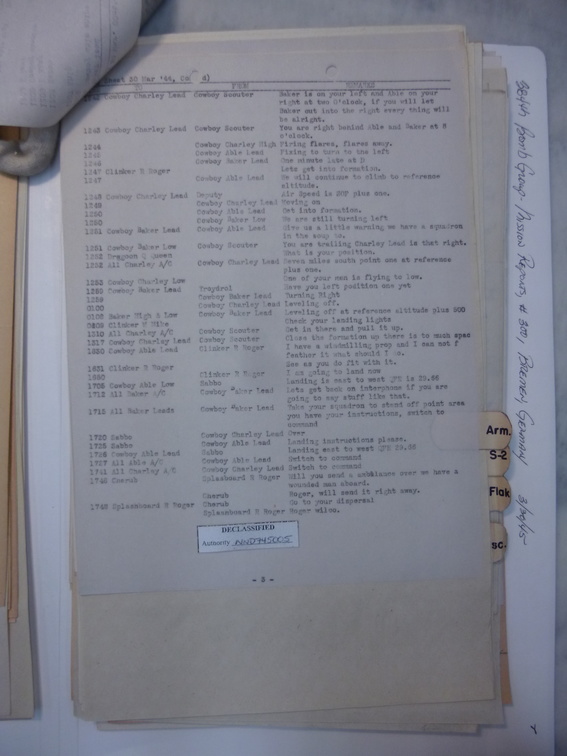 TO FROM REMARKS
Cowboy Charley Lead Cowboy Scouter Baker is on your left and Able on your
right at two O'clock, if you will let
Baker out into the right every thing will
be alright.
1243 Cowboy Charley Lead Cowboy Scouter You are right behind Able and Baker at 8
o'clock.
1244 Cowboy Charley High Firing flares, flares away.
Cowboy Able Lead Fixing to turn to the left
Cowboy Baker Lead One minute late at D
1247 Clinker R Roger Lets get into formation.
1247 Cowboy Able Lead We will continue to climb to reference
altitude.
1248 Cowboy Charley Lead Deputy Air Speed is plus one.
Cowboy Charley Lead Moving on
1250 Cowboy Able Lead Get into formation.
1250 Cowboy Baker Low We are still turning left
1251 Cowboy Baker Lead Cowboy Able Lead Give us a little warning we have a squadron
in the soup to.
1251 Cowboy Baker Low Cowboy Scouter You are trailing Charley Lead is that right.
Dragoon Queen What is your position.
All Charley A/C Cowboy Charley Lead Seven miles south point one at reference
plus one.
Cowboy Charley Low One of your man is flying to low.
Cowboy Baker Lead Have you left position one yet
Cowboy Baker Lead Turning Right
Cowboy Charley Lead Leveling off.
Baker High & Low Cowboy Baker Lead Leveling off at reference altitude plus 500
Check your landing lights
Clinker Get in there and pull it up.
1310 All Charley A/C Cowboy Scouter Close the formation up there is to much spac
1317 Cowboy Charley Lead Cowboy Scouter I have a windmilling prop and I can not f
Cowboy Able Lead Clinker R Roger feather it what should I do.
See as you do fit with it.
1631 Clinker R Roger I am going to land now
Clinker R Roger Landing is east to west QFE is 29.66
1705 Cowboy Able Low Sabbo Lets get back on interphone if you are
1713 All Baker A/C Cowboy Baker Lead going to say stuff like that.
1715 All Baker Leads Cowboy Baker Lead Take your squadron to stand off point area
you have your instructions, switch to
command
1720 Sabbo Cowboy Charley Lead Over
1725 Sabbo Cowboy Able Lead Landing instructions please.
1726 Cowboy Able Lead Sabbo Landing east to west QFE 29.66
1727 All Able A/C Cowboy Able Lead Switch to command
1741 All Charley A/C Cowboy Charley Lead Switch to command
1746 Cherub Splashboard R Roger Will you send a ambulance over we have a
wounded man aboard.
Cherub Roger, will send it right away.
1748 Splashboard R Roger Cherub Go to your dispersal
Splashboard R Roger Roger wilco.
DECLASSIFIED
Authority NND745005
- 3 -
Arm.
S-2
Flak
sc.
384th Bomb Group - Mission Reports, # 300, Bremen, Germany 3/30/45